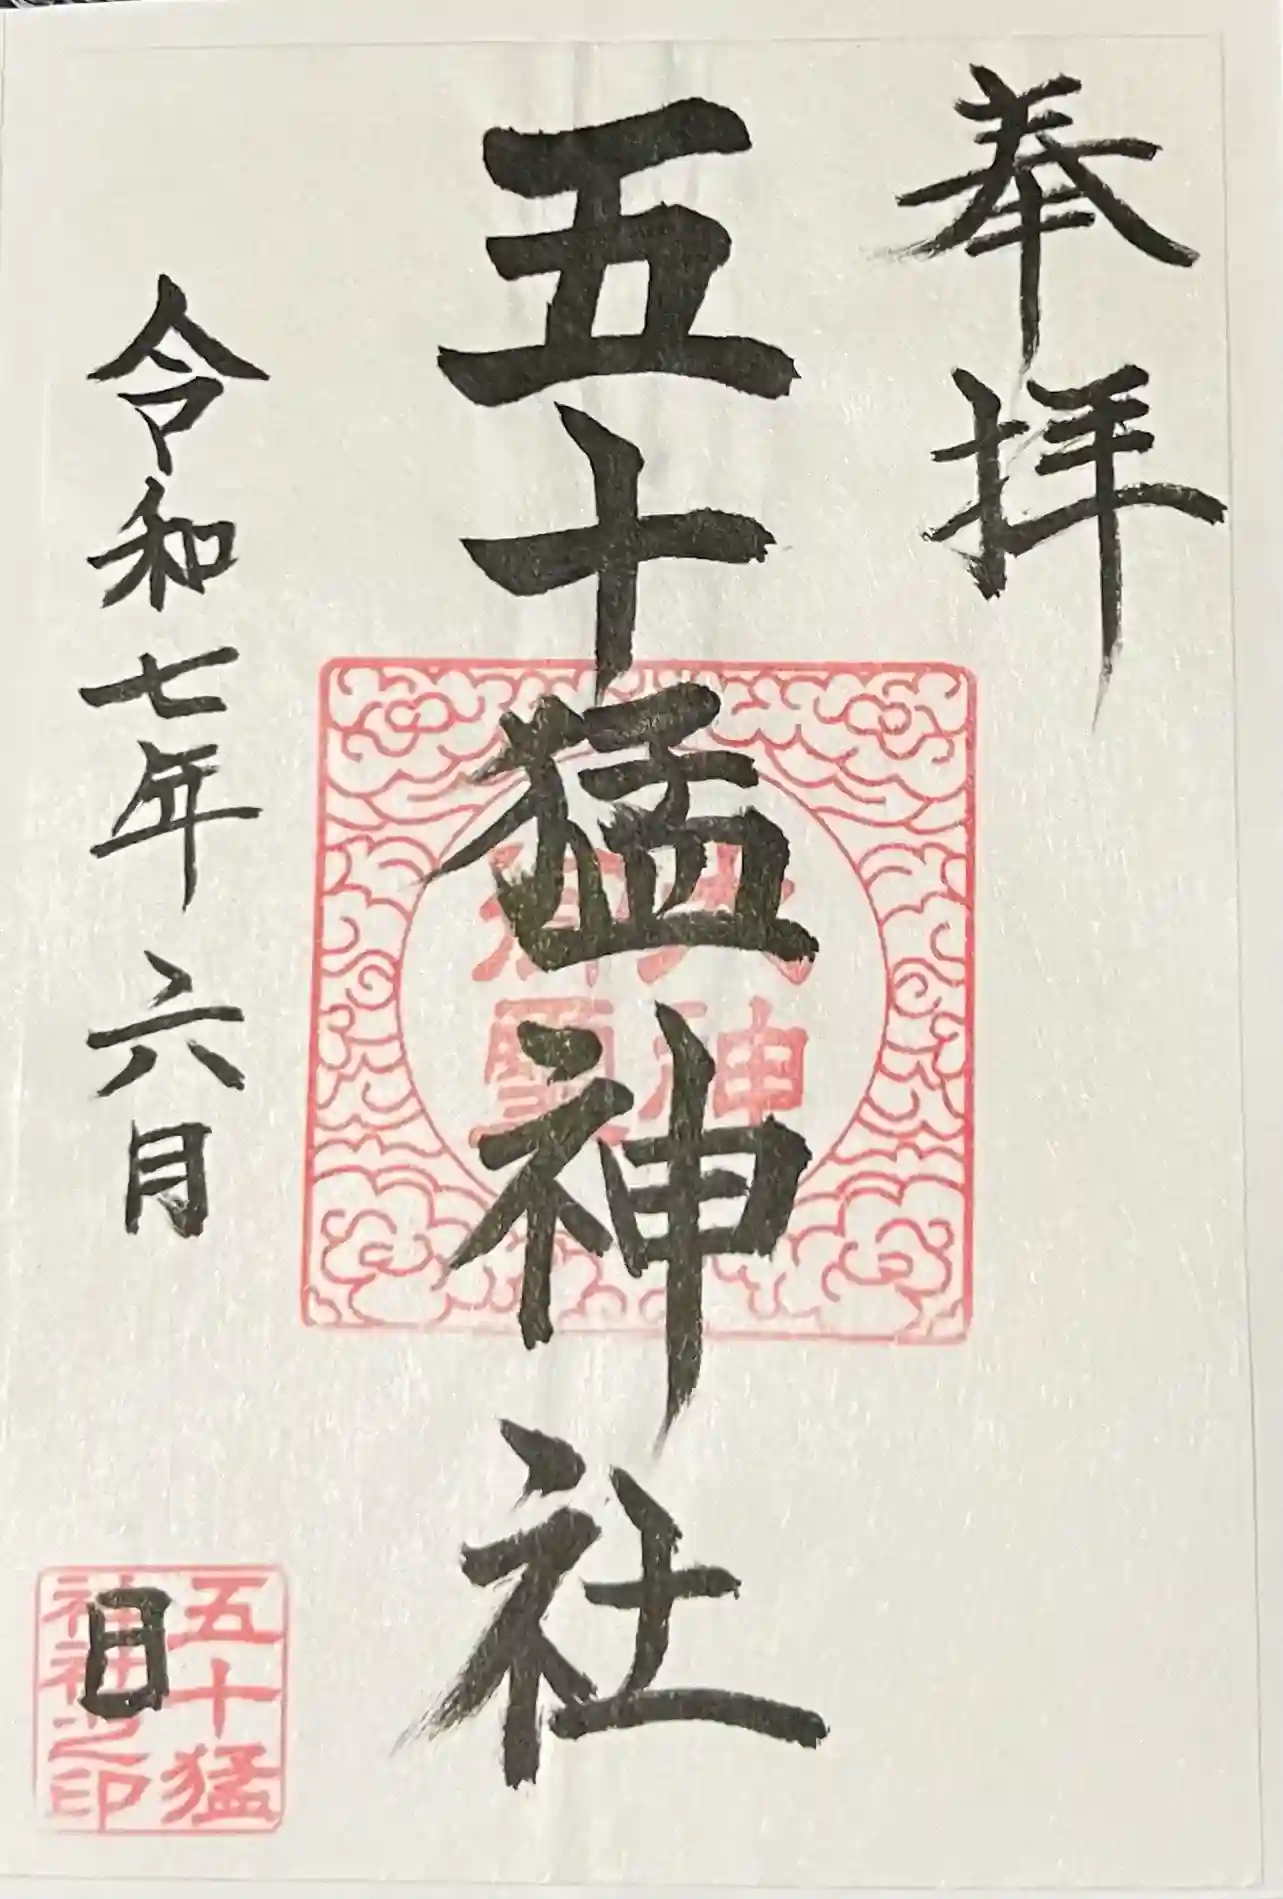 奉拝
五十猛神社
令和七年六月 日
五十猛
神社之印